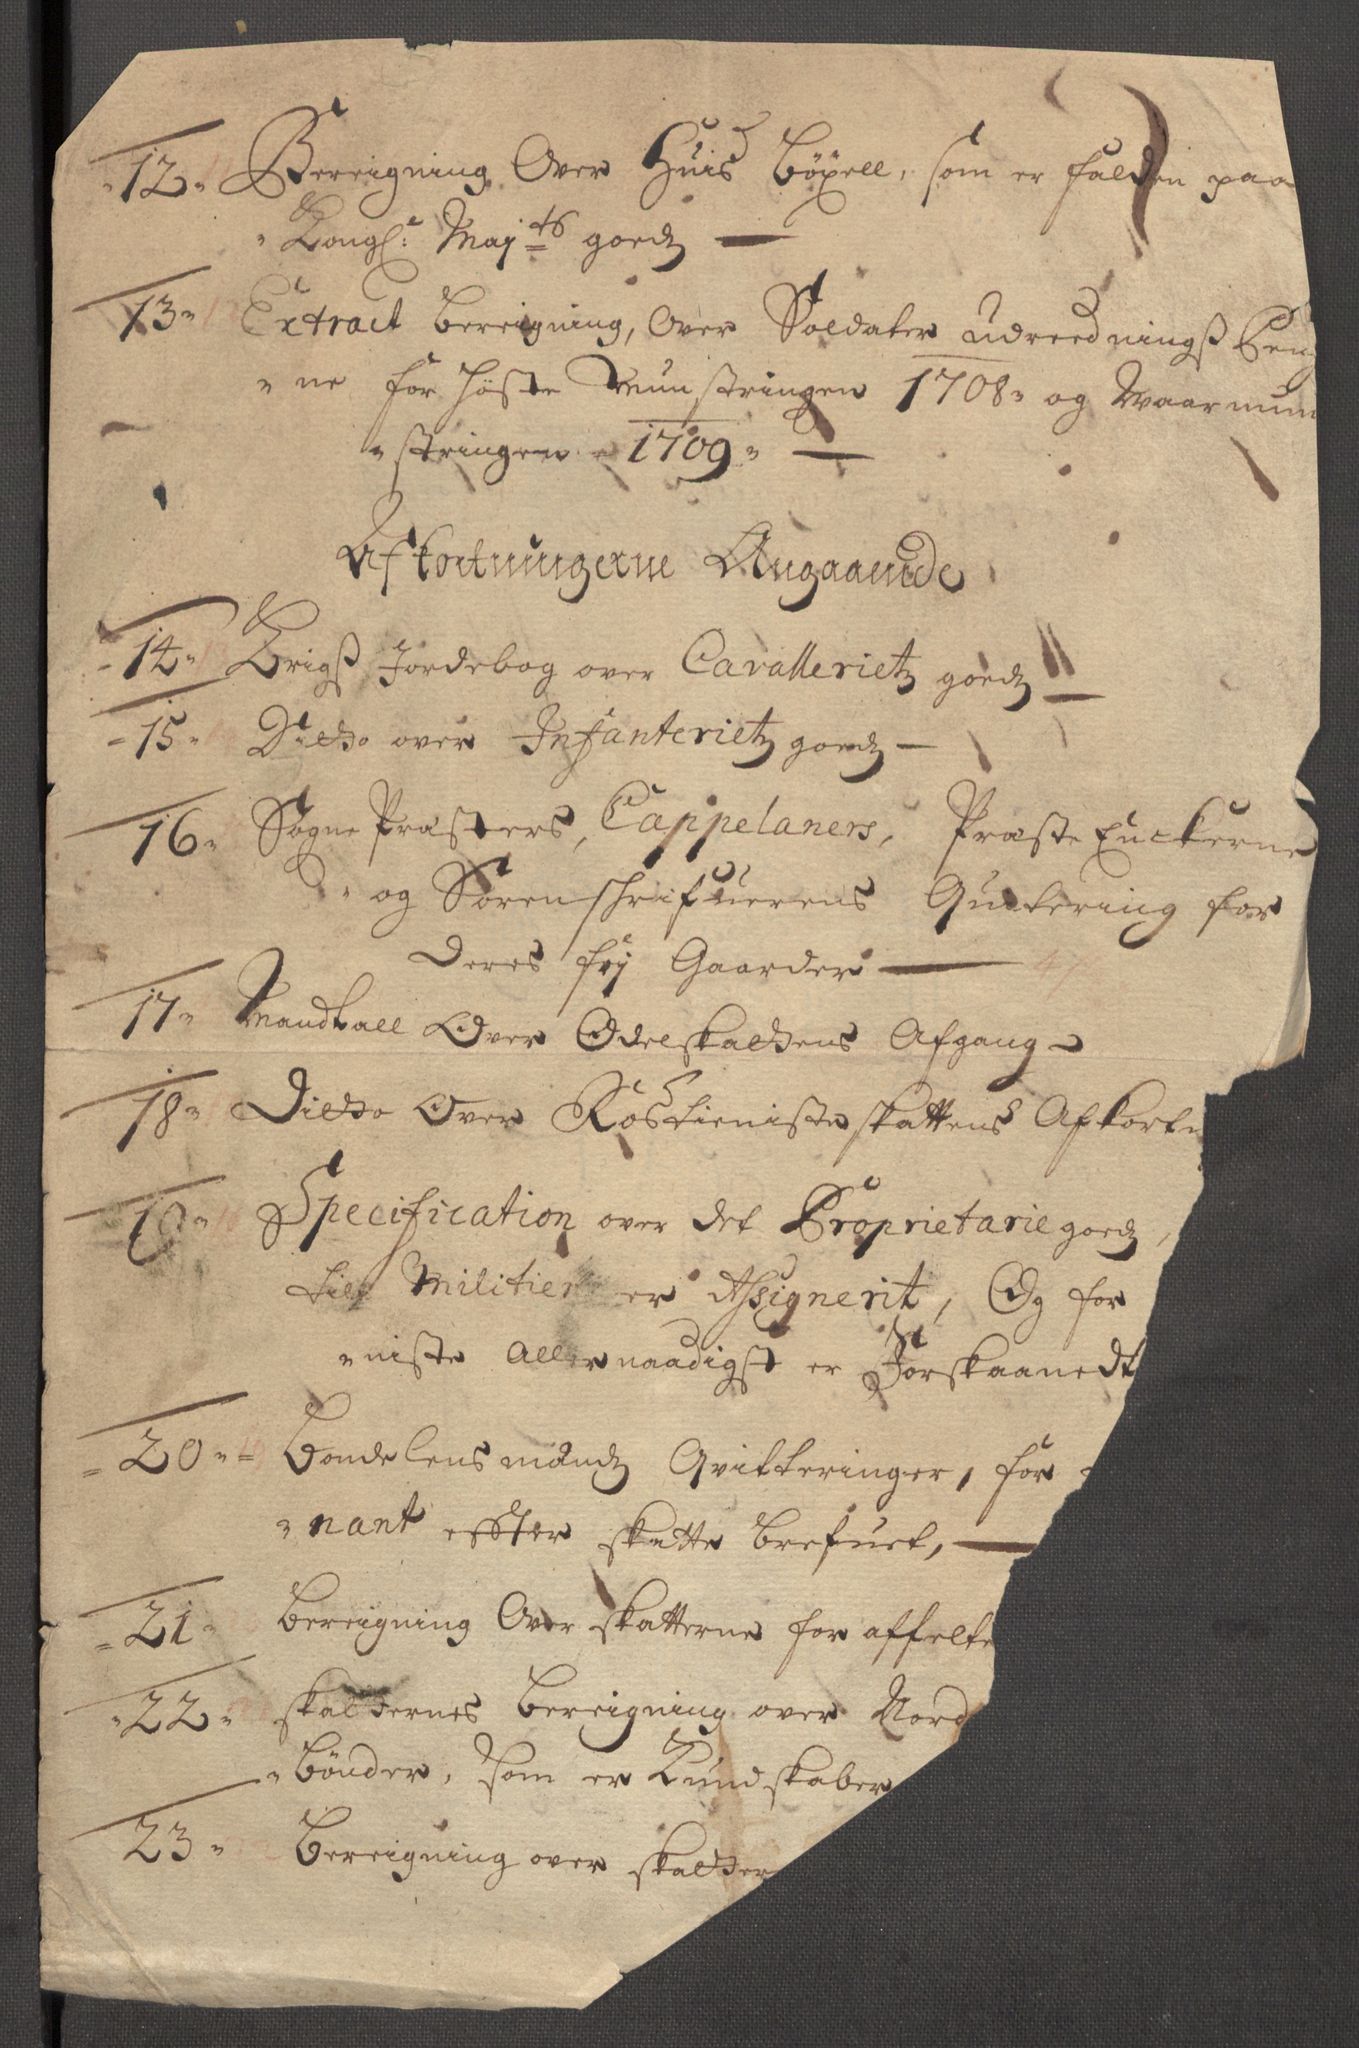 12. Bereigning Over Huis böxell, som er falden paa
Kongl: Maj:ts goedz
13. Extract bereigning, over Soldater udreednings Peng
ne for höste Munstringen 1708. og Waar mun
stringen 1709.
Afkortningerne Angaaende
14. Krigß Jordebog over Cavalleriets goedz
15. Ditto over Infanteriets goedz
16. Sogne Præsters, Cappelaners, Præste Enckerne
og Sorenschrifuerens Quitering for
deres frj Gaarder
17. Mandtall Over Odelskattens Afgang
18. Ditto Over Rostienisteskattens Afkort
19. Specification over det Proprietarie goedz,
till Militien er Assignerit, Og for
niste Allernaadigst er Forskaanedt
20. Bondelensmændz Qvitteringer, for
nant effter skatte brefuet,
21. Bereigning Over skatterne for affelte
22. skatternes bereigning over Nord
bönder, som er Kundskaber
23. Bereigning over skatter